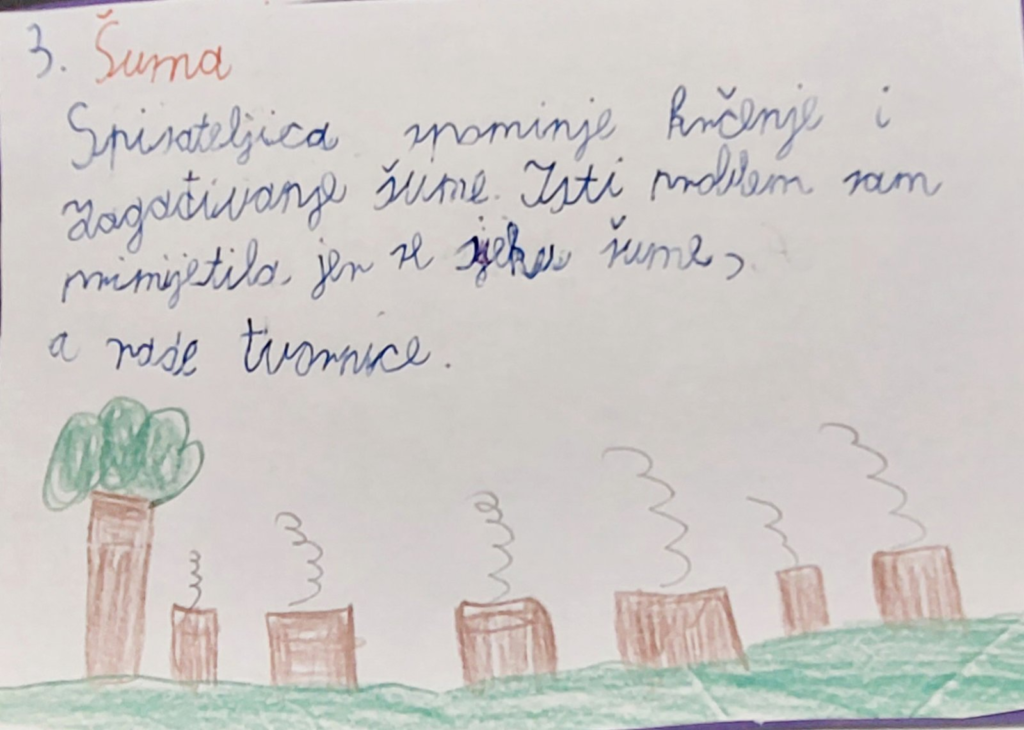 3. Šuma
Spisateljica spominje krčenje i
zagađivanje šume. Isti problem sam
primijetila jer se sjeku šume,
a rade tvornice.